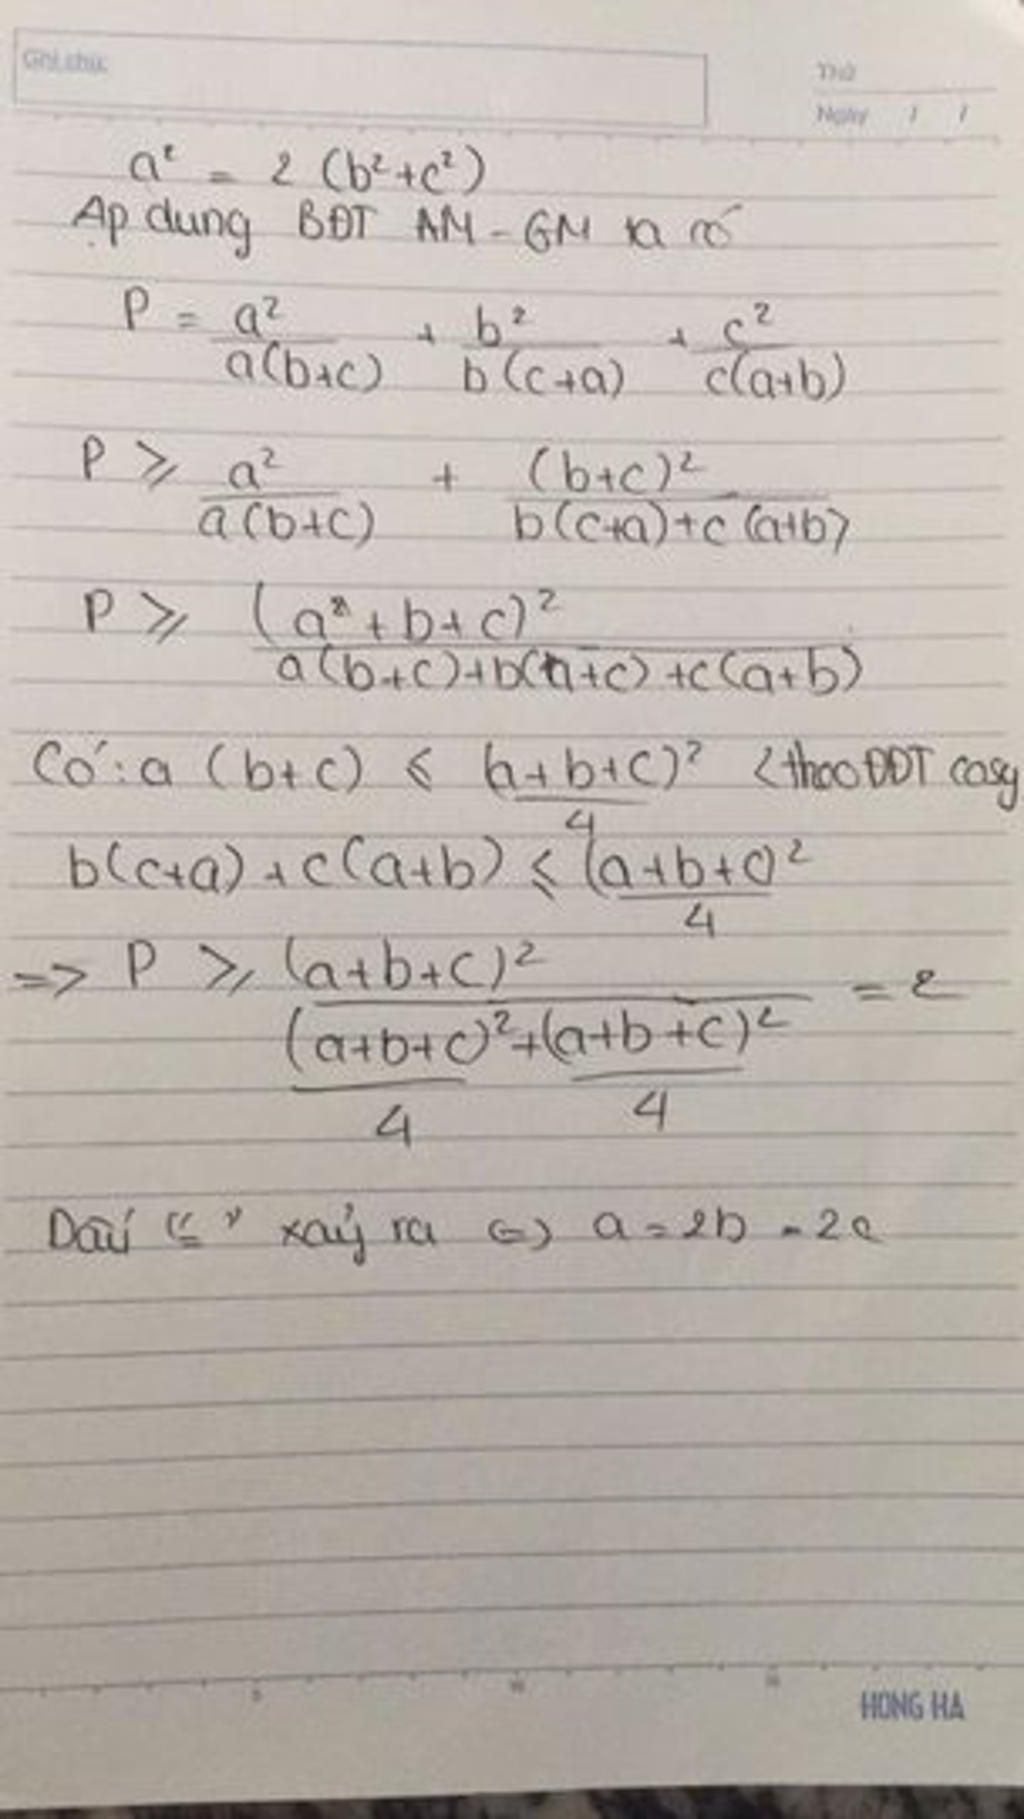 Ghi chú:
Thứ
Ngày / /
a² = 2 (b²+c²)
Áp dụng BĐT AM-GM ta có
P = a²/a(b+c) + b²/b(c+a) + c²/c(a+b)
P ⩾ a²/a(b+c) + (b+c)²/b(c+a)+c(a+b)
P ⩾ (a+b+c)²/a(b+c)+b(a+c)+c(a+b)
Có: a (b+c) ⩽ (a+b+c)²/4 (theo BĐT cosy
b(c+a)+c(a+b) ⩽ (a+b+c)²/4
=> P ⩾ (a+b+c)²/((a+b+c)²/4+(a+b+c)²/4) = 2
Dấu "=" xảy ra <=> a=2b=2c
5 10 15
HONG HA